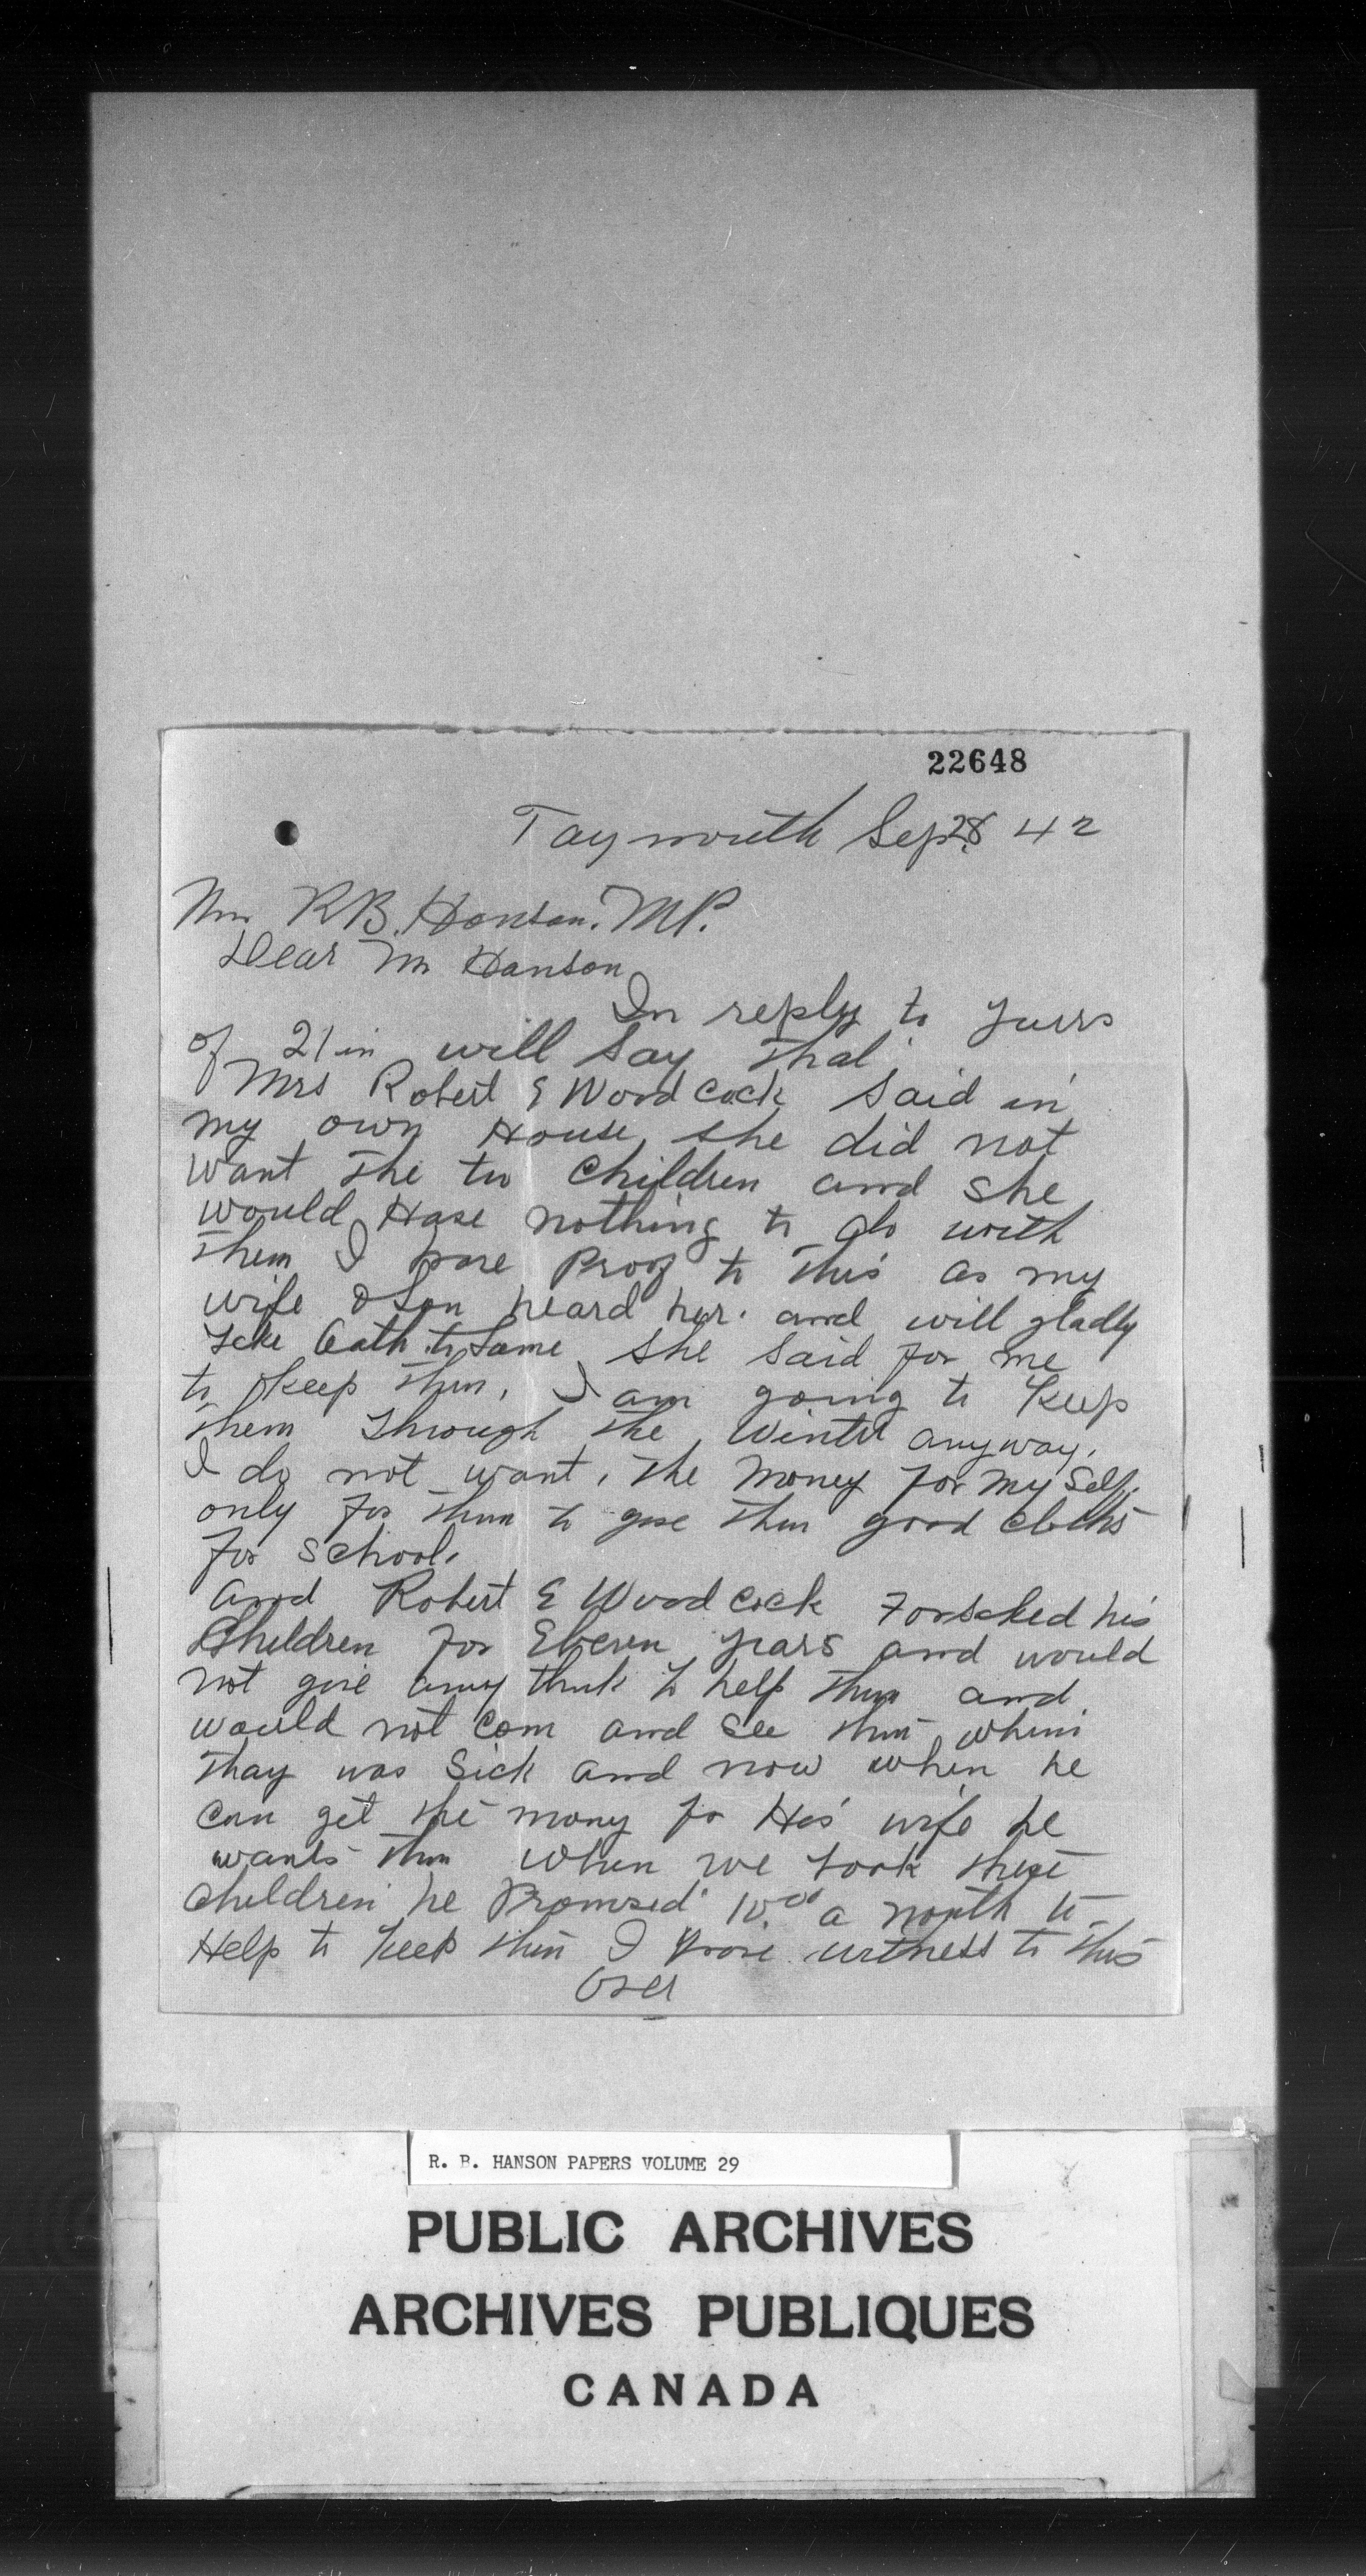 22648
Taymouth Sep 28 42
Mr R B. Hanson. M P.
Dear Mr Hanson
In reply to yours
of 21 in will say that
Mrs Robert E Woodcock said in
my own House she did not
want the tw children and she
would Have nothing to do with
them I have Proof to this as my
wife & Son heard her. and will gladly
take Oath to Same she said for me
to keep them, I am going to keep
them through the Winter anyway.
I do not want, the money for my self,
only for them to give them good cloths
for school.
and Robert E Woodcock Forsaked his
Children for Eleven years and would
not give any think to help them and
would not com and see them when
thay was sick and now when he
can get the mony for His wife he
wants them when we took these
children he Promised 10.00 a month to
Help to keep them I have witness to this
Over
R. B. HANSON PAPERS VOLUME 29
PUBLIC ARCHIVES
ARCHIVES PUBLIQUES
CANADA